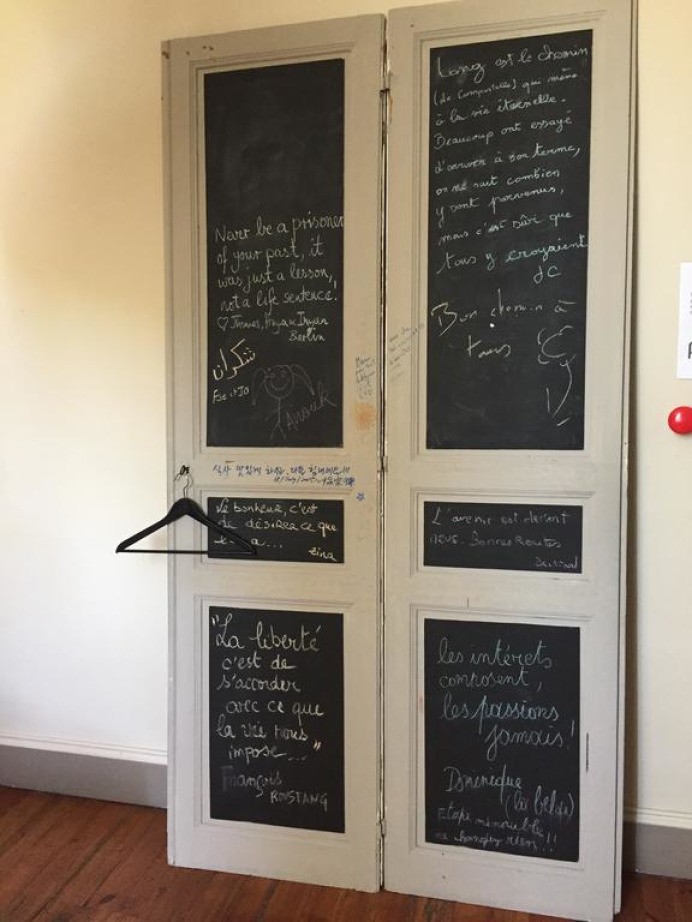 Never be a prisoner
of your past, it
was just a lesson,
not a life sentence!
Berlin
شكران
Anouk
Le bonheur, c'est
de désirer ce que
a...
Lina
"La liberté
c'est de
s'accorder
avec ce que
la vie nous
impose..."
François
ROUSTANG
Long est le chemin
(de Compostelle) qui mène
à la vie éternelle.
Beaucoup ont essayé
d'arriver à son terme,
on ne sait combien
y sont parvenus,
mais c'est sûr que
tous y croyaient
JC
Bon chemin à
tous
L'avenir est devant
nous. Bonnes Routes
les intérets
composent,
les passions
jamais!
Dominique
(les belges)
Etape mémorable
ne changez rien!!